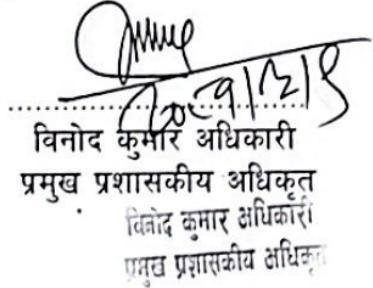 विनोद कुमार अधिकारी
प्रमुख प्रशासकीय अधिकृत
विनोद कुमार अधिकारी
प्रमुख प्रशासकीय अधिकृत